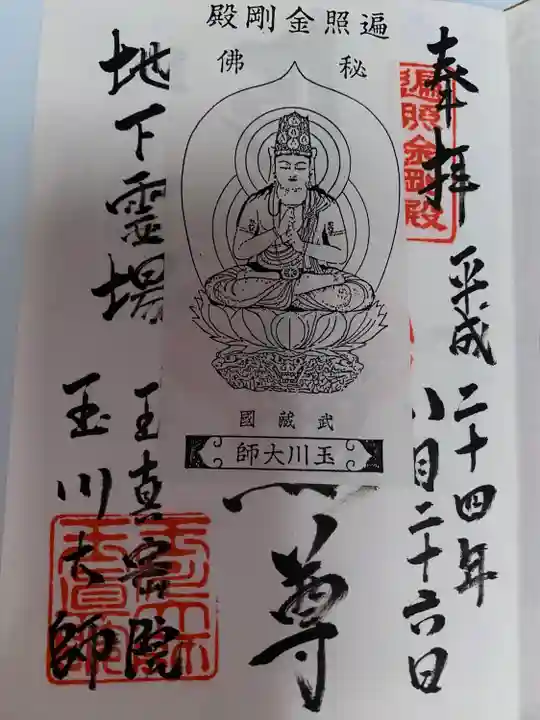 奉拝
遍照金剛殿
平成二十四年
八月二十六日
遍照金剛殿
秘佛
武蔵國
玉川大師
尊
地下霊場
玉真密院
玉川大師